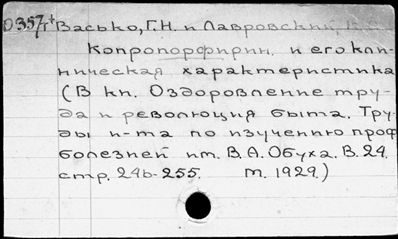 О357 Васько, Г.Н. и Лавровский,
Копропорфирин и его кли-
ническая характеристика
(В кн. Оздоровление тру-
да и революция быта. Тру-
ды и-та по изучению проф
болезней им. В.А. Обуха. В. 24.
стр. 246-255. М. 1929.)